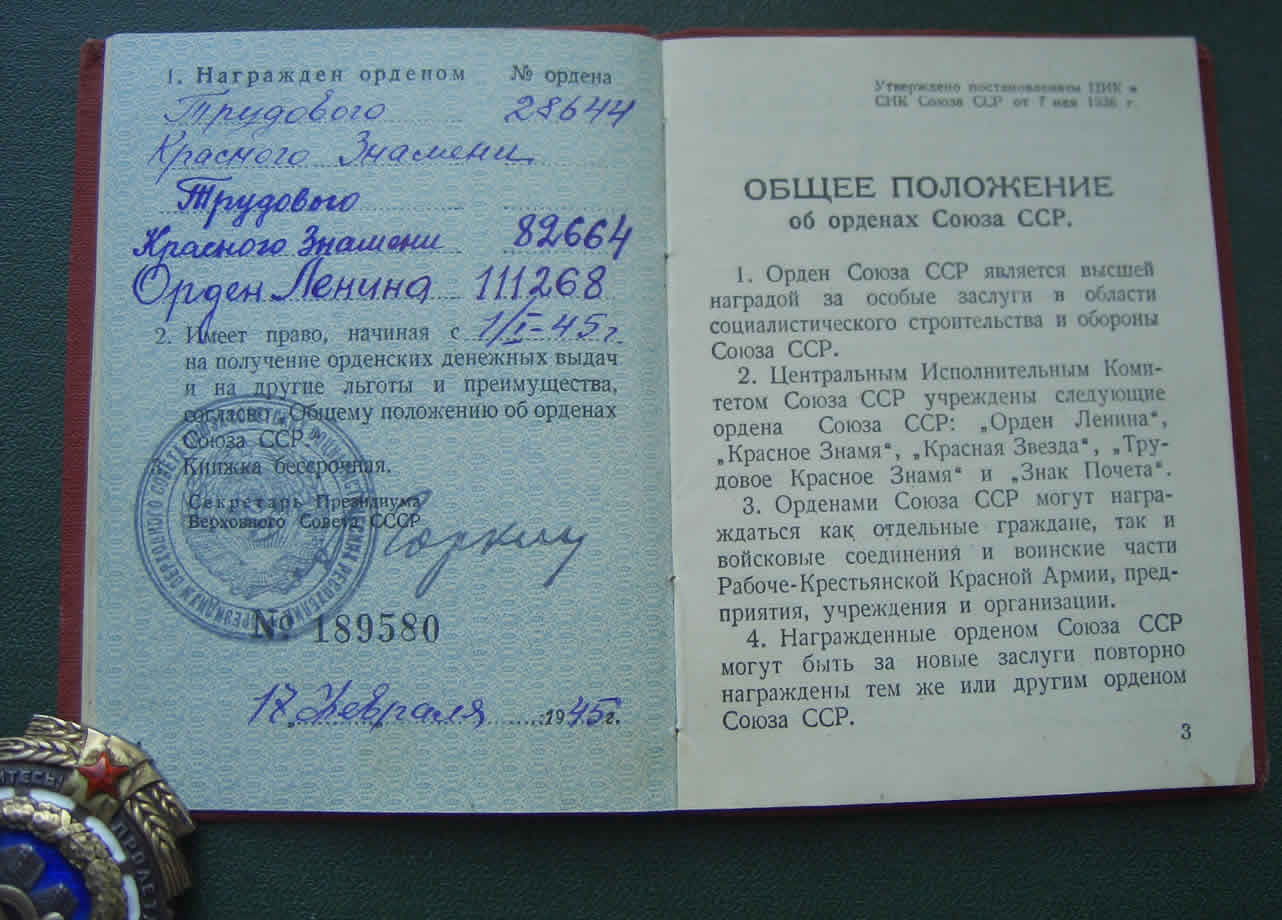 1. Награжден орденом № ордена
Трудового 28644
Красного Знамени
Трудового
Красного Знамени 82664
Орден Ленина 111268
2. Имеет право, начиная с 1/I-45г
на получение орденских денежных выдач
и на другие льготы и преимущества,
согласно Общему положению об орденах
Союза ССР.
3. Книжка бессрочная.
Секретарь Президиума
Верховного Совета СССР
Горкин
№ 189580
17 Февраля 1945г.
Утверждено постановлением ЦИК и
СНК Союза ССР от 7 мая 1936 г.
ОБЩЕЕ ПОЛОЖЕНИЕ
об орденах Союза ССР.
1. Орден Союза ССР является высшей
наградой за особые заслуги в области
социалистического строительства и обороны
Союза ССР.
2. Центральным Исполнительным Коми-
тетом Союза ССР учреждены следующие
ордена Союза ССР: „Орден Ленина“,
„Красное Знамя“, „Красная Звезда“, „Тру-
довое Красное Знамя“ и „Знак Почета“.
3. Орденами Союза ССР могут награ-
ждаться как отдельные граждане, так и
войсковые соединения и воинские части
Рабоче-Крестьянской Красной Армии, пред-
приятия, учреждения и организации.
4. Награжденные орденом Союза ССР
могут быть за новые заслуги повторно
награждены тем же или другим орденом
Союза ССР.
3